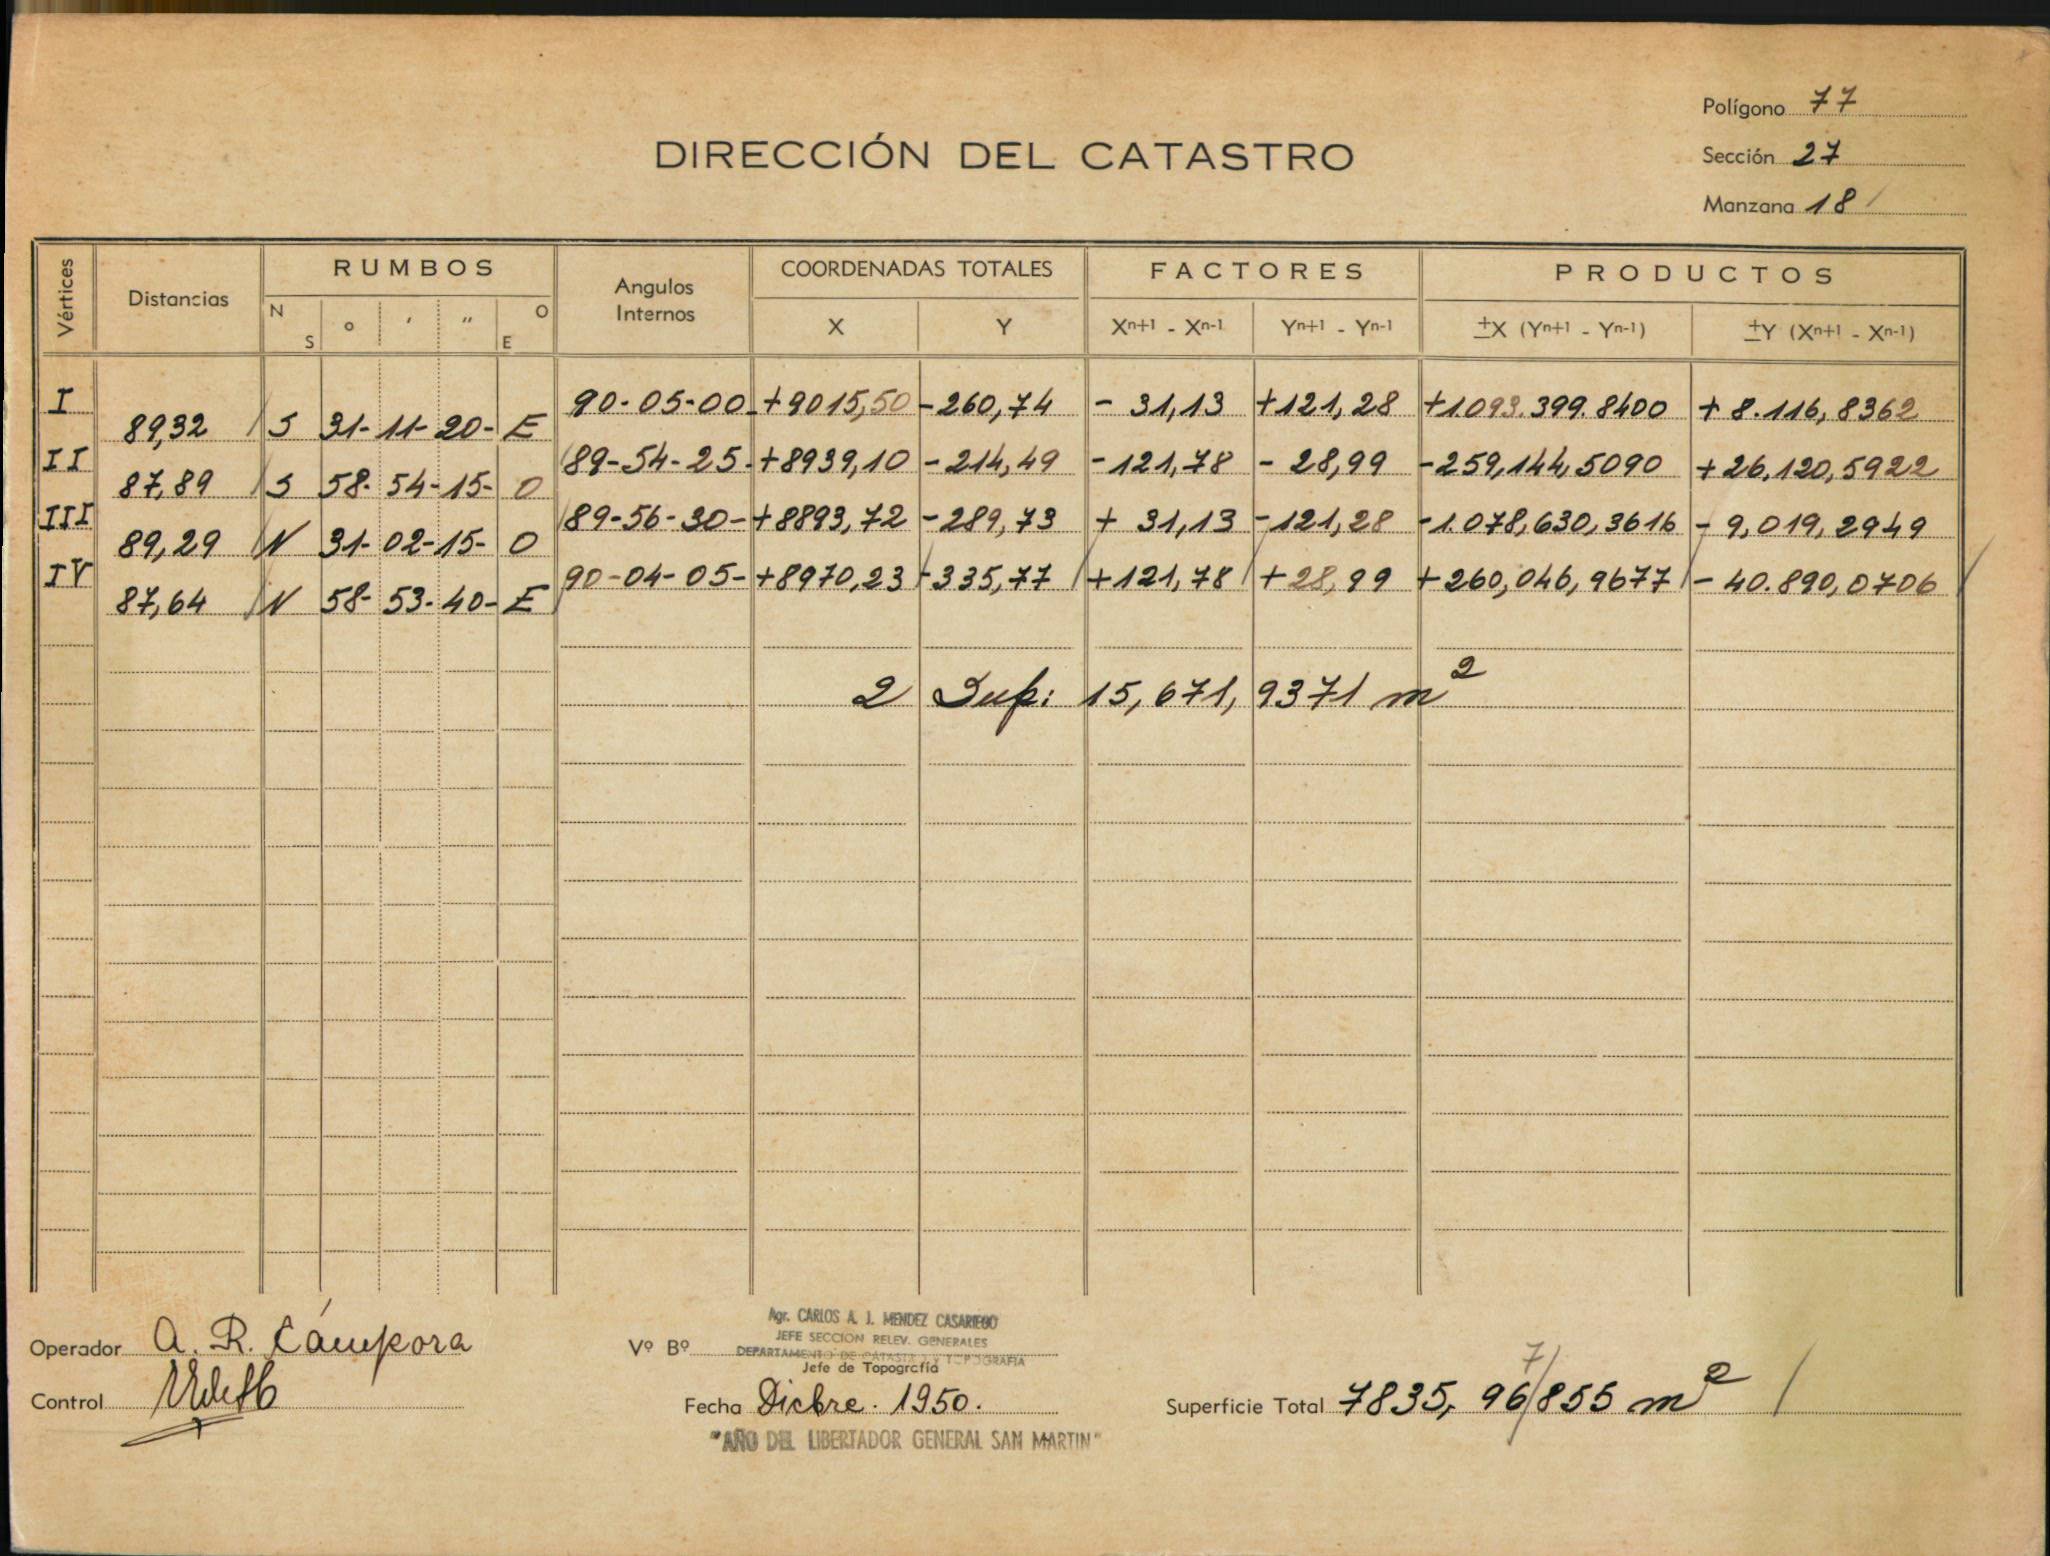 Polígono 77
DIRECCIÓN DEL CATASTRO
Sección 27
Manzana 18
Vértices
Distancias
RUMBOS
N S ° ' " O E
Angulos
Internos
COORDENADAS TOTALES
X Y
FACTORES
Xn+1 - Xn-1 Yn+1 - Yn-1
PRODUCTOS
±X (Yn+1 - Yn-1) ±Y (Xn+1 - Xn-1)
I 90-05-00 +9015,50 -260,74 - 31,13 +121,28 +1093.399.8400 + 8.116,8362
89,32 S 31-11-20- E
II 89-54-25- +8939,10 -214,49 -121,78 - 28,99 -259,144,5090 +26.120,5922
87,89 S 58-54-15- O
III 89-56-30- +8893,72 -289,73 + 31,13 -121,28 -1.078,630,3616 - 9,019,2949
89,29 N 31-02-15- O
IV 90-04-05- +8970,23 -335,77 +121,78 +28,99 +260,046,9677 - 40.890,0706
87,64 N 58-53-40- E
2 Sup: 15,671,9371 m2
Operador A. R. Cámpora
Control
Vº Bº
Agr. CARLOS A. J. MENDEZ CASARIEGO
JEFE SECCION RELEV. GENERALES
DEPARTAMENTO DE CATASTRO Y TOPOGRAFIA
Jefe de Topografía
Fecha Dicbre. 1950.
"AÑO DEL LIBERTADOR GENERAL SAN MARTIN"
7
Superficie Total 7835, 96/855 m2